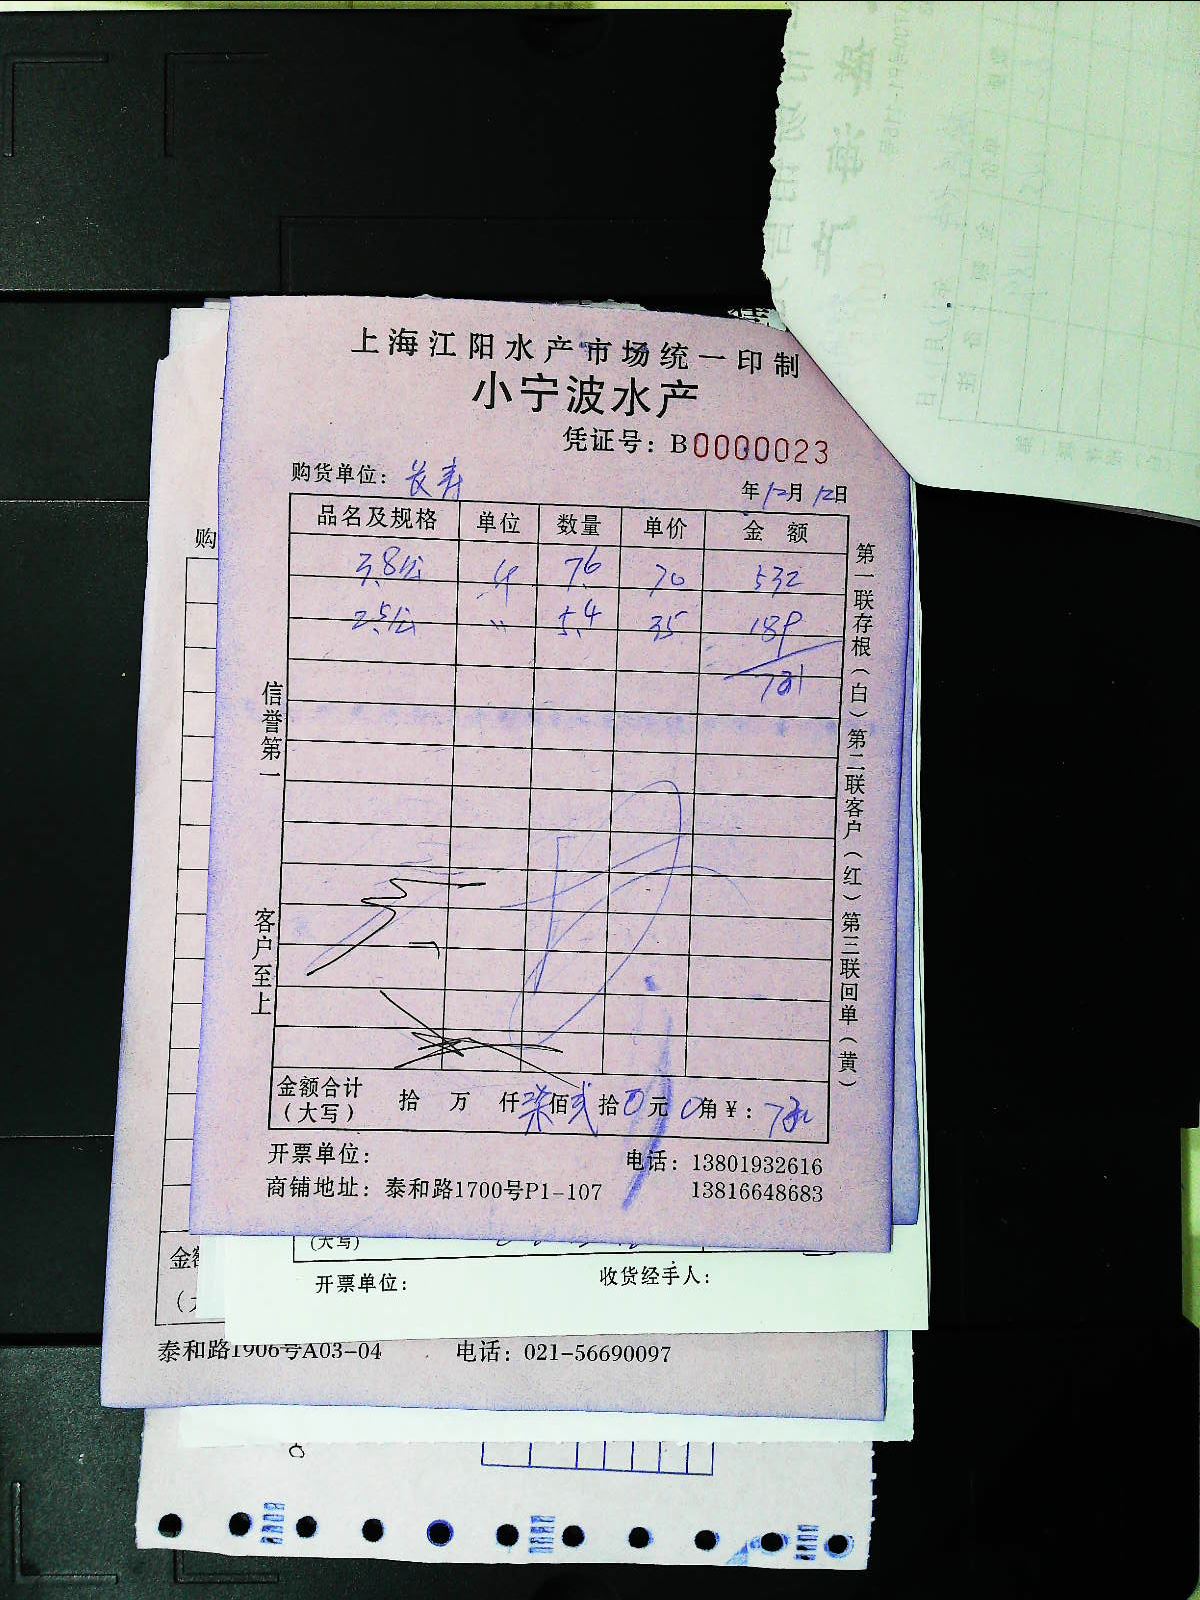 上海江阳水产市场统一印制
小宁波水产
凭证号：B0000023
购货单位：长寿
年12月12日
品名及规格 单位 数量 单价 金额
3.8公 斤 7.6 70 532
2.5公 〃 5.4 35 189
721
信誉第一
客户至上
第一联存根（白）第二联客户（红）第三联回单（黄）
金额合计（大写） 拾 万 仟柒佰贰拾0元0角￥：720
开票单位：
电话：13801932616
商铺地址：泰和路1700号P1-107
13816648683
购
金
（大写）
开票单位：
收货经手人：
泰和路1906号A03-04 电话：021-56690097